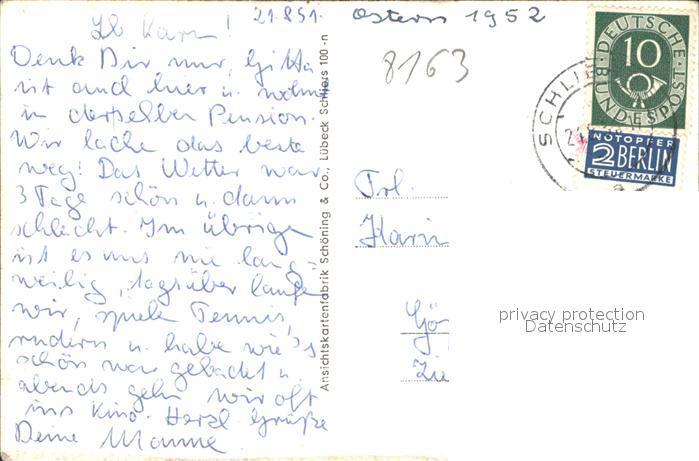 21.8.51.
Lb Karin!
Denk Dir nur, Gitta
ist auch hier u. wohnt
in derselben Pension.
Wir lache das beste
weg! Das Wetter war
3 Tage schön u. dann
schlecht. Im übrigen
ist es uns nie lang-
weilig, tagsüber laufe
wir, spiele Tennis,
rudern u. habe wie's
schön war gebadet u.
abends gehn wir oft
ins Kino. Herzl Grüße
Deine
Ansichtskartenfabrik Schöning & Co., Lübeck Schliers 100-n
Ostern 1952
8163
DEUTSCHE BUNDESPOST
10
NOTOPFER
2 BERLIN
STEUERMARKE
SCHLIE
Frl.
Karin
Gö
privacy protection
Datenschutz